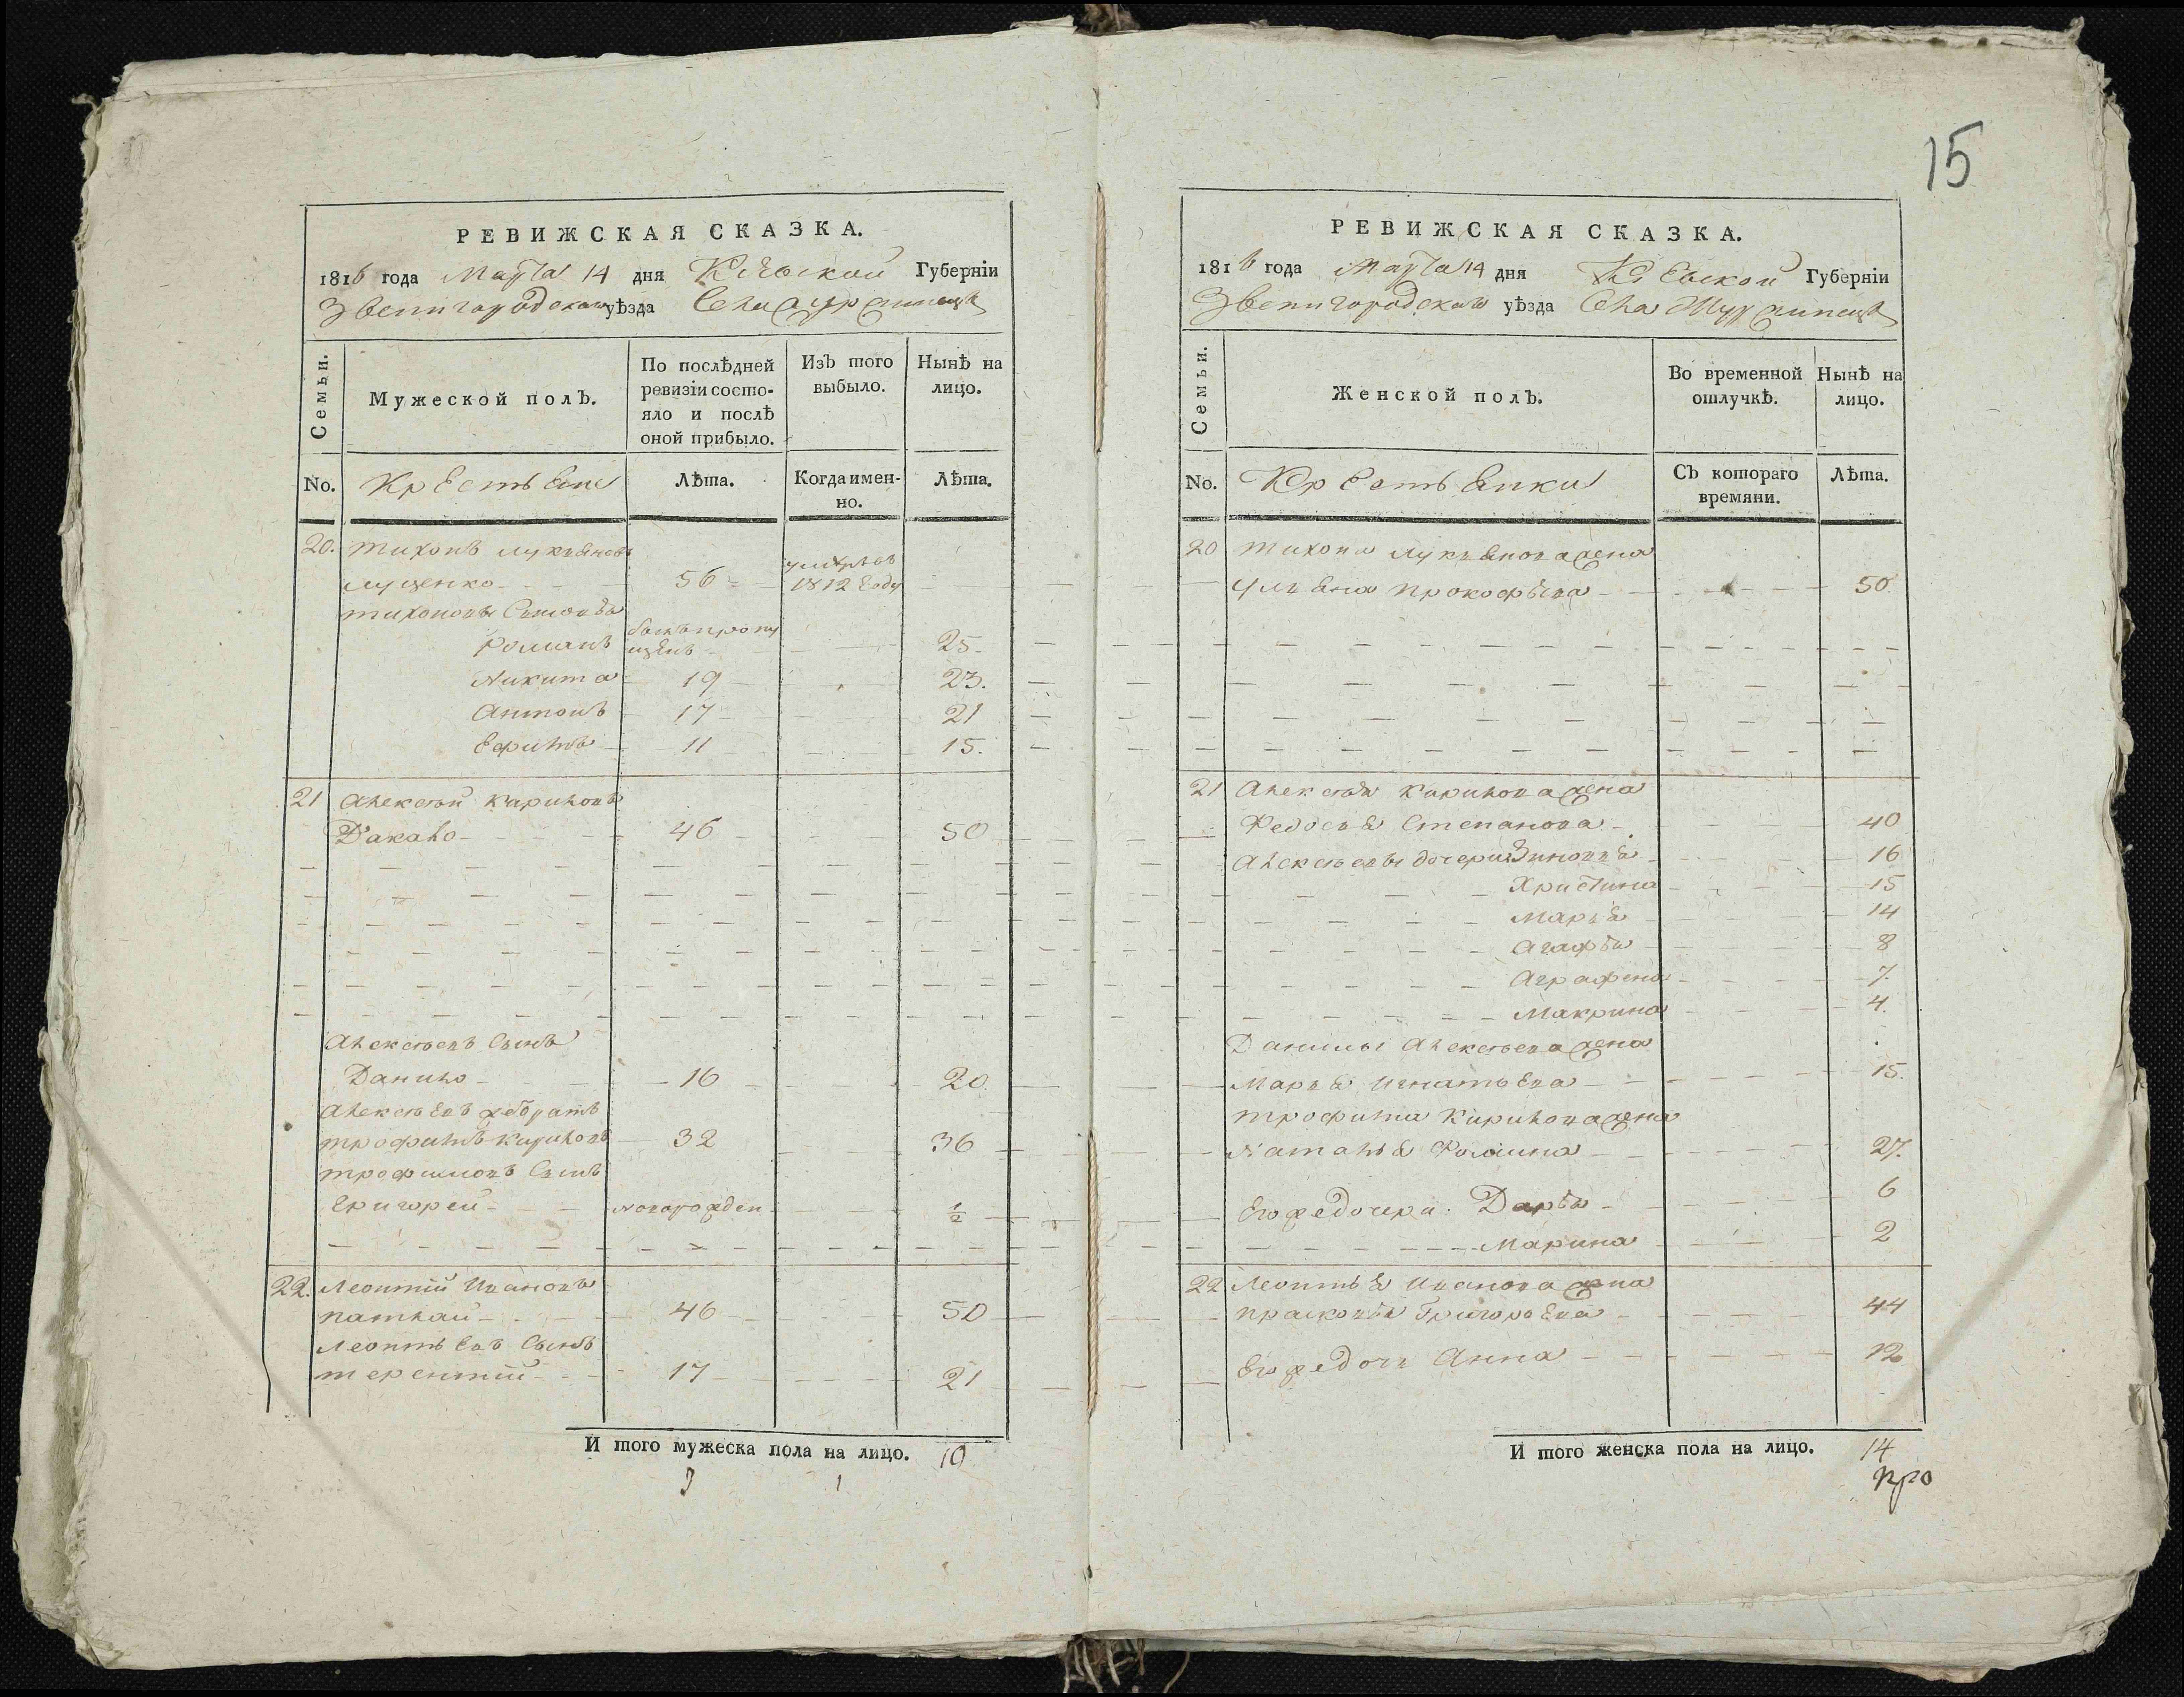 15
РЕВИЖСКАЯ СКАЗКА.
1816 года Марта 14 дня Кіевской Губерніи
Звенигородскаго уѣзда Села Журжинецъ
Семьи.
Мужеской полъ.
По послѣдней ревизіи состояло и послѣ оной прибыло.
Изъ того выбыло.
Нынѣ на лицо.
No.
Крестьяне
Лѣта.
Когда именно.
Лѣта.
20. Тихонъ Лукьяновъ
Луценко 56 умре въ 1812 году
Тихоновы Сыновья
Романъ былъ пропущенъ 25
Никита 19 23.
Антонъ 17 21
Ефимъ 11 15.
21 Алексѣй Кириловъ
46 50
Алексѣевъ Сынъ
Данило 16 20.
Алексѣевъ же братъ
Трофимъ Кириловъ 32 36
Трофимовъ Сынъ
Григорей новорожден ½
22. Леонтій Ивановъ
46 50
Леонтьевъ Сынъ
Терентій 17 21
И того мужеска пола на лицо. 10
3 1
РЕВИЖСКАЯ СКАЗКА.
1816 года Марта 14 дня Кіевской Губерніи
Звенигородскаго уѣзда Села Журжинецъ
Семьи.
Женской полъ.
Во временной отлучкѣ.
Нынѣ на лицо.
No.
Крестьянки
Съ котораго времяни.
Лѣта.
20 Тихона Лукьянова жена
Ульяна Прокофьева 50.
21 Алексѣя Кирилова жена
Федосья Степанова 40
Алексѣевы дочери Зиновья 16
Христина 15
Марья 14
Агафья 8
Аграфена 7.
Макрина 4.
Данилы Алексѣева жена
Марья Игнатьева 15.
Трофима Кирилова жена
Наталья 27.
Его же дочери: Дарья 6
Марина 2
22 Леонтья Иванова жена
Прасковья Григорьева 44
Его же дочь Анна 12
И того женска пола на лицо. 14